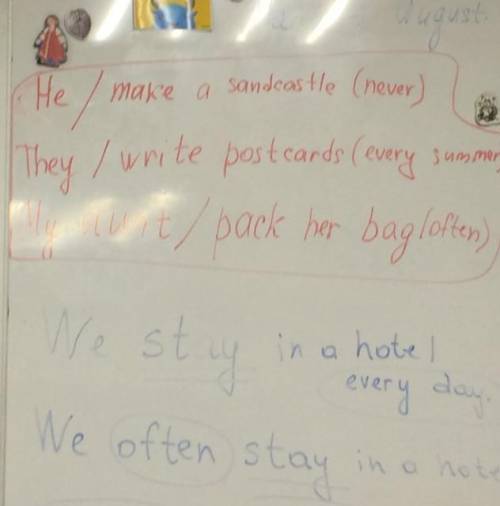 August.
He / make a sandcastle (never)
They / write postcards (every summer)
My aunt / pack her bag (often)
We stay in a hotel
every day.
We often stay in a hote